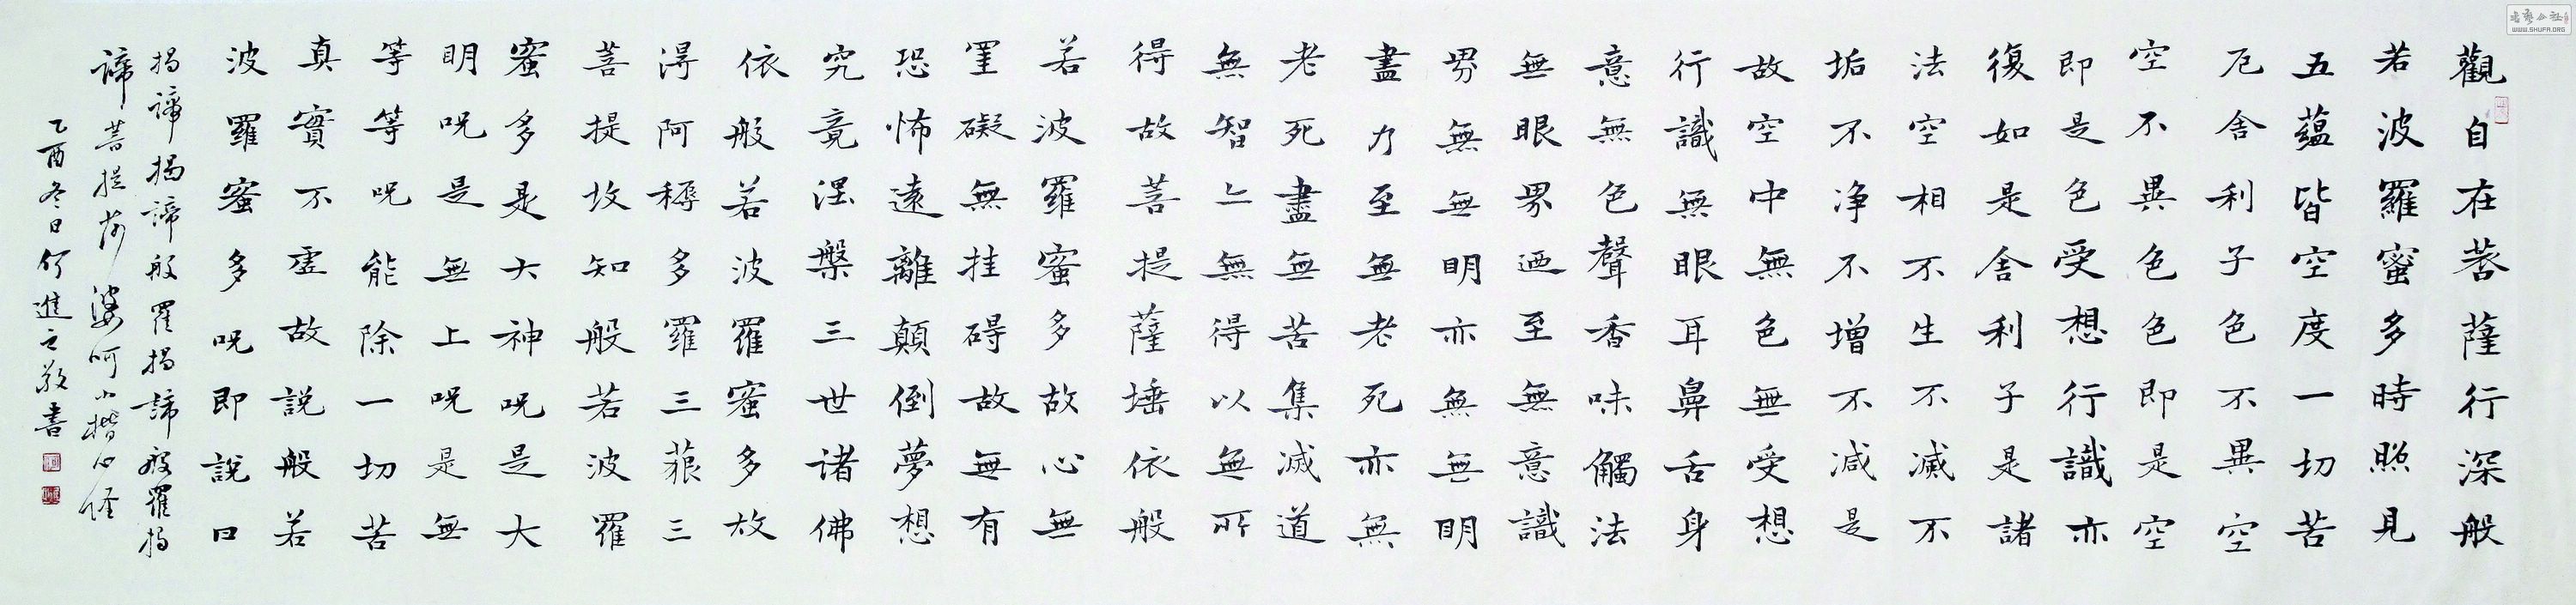 觀自在菩薩行深般
若波羅蜜多時照見
五蘊皆空度一切苦
厄舍利子色不異空
空不異色色即是空
即是色受想行識亦
復如是舍利子是諸
法空相不生不滅不
垢不净不增不減是
故空中無色無受想
行識無眼耳鼻舌身
意無色聲香味觸法
無眼界迺至無意識
界無無明亦無無明
盡乃至無老死亦無
老死盡無苦集滅道
無智無得以無所
得故菩提薩埵依般
若波羅蜜多故心無
罣礙無挂碍故無有
恐怖遠離顛倒夢想
究竟涅槃三世諸佛
依般若波羅蜜多故
淂阿耨多羅三藐三
菩提故知般若波羅
蜜多是大神呪是大
明呪是無上呪是無
等等呪能除一切苦
真實不虛故說般若
波羅蜜多呪即說曰
揭諦揭諦般羅揭諦般羅揭
諦菩提薩婆呵小楷心經
乙酉冬日何進之敬書
WWW.SHUFA.ORG